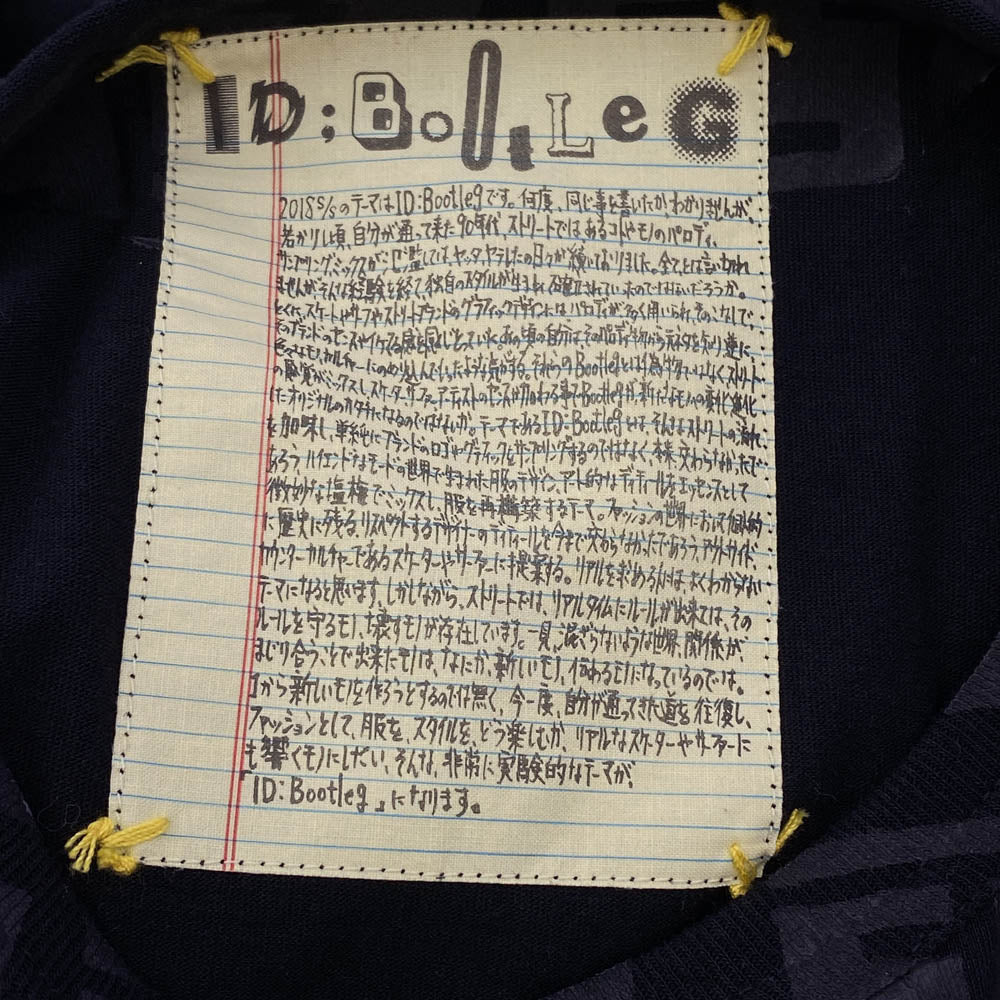 ID:BootLeG
2018 S/Sのテーマは ID:Bootlegです。何度、同じ事を書いたかわかりませんが、
若かりし頃、自分が通って来た90年代 ストリートではあるコトやモノのパロディ、
サンプリング、ミックスが
全てとは言い切れ
ませんがそんな経験を経て、独自のスタイルが生まれて確立されていったのではないだろうか。
とくに、スケートやサーフやストリートブランドのグラフィックデザインには、パロディが多く用いられ、
そのブランドのセンスやイケてる感を
あの頃の自分はそのパロディ物から元ネタを知り逆に、
色々なモノ、カルチャーにのめり込んでいったような気がする。それらのBootlegとは偽物ではなくストリート
の感覚がミックスし、スケーター、サーファー、アーティストのセンスが加わる事でBootlegが、新たなモノへの変化、進化
したオリジナルのカタチになるのではないか。テーマであるID:Bootlegは、そんなストリートの流れ
を加味し、単純にブランドのロゴやグラフィックをサンプリングするのではなく、本来、交わらなかったで
あろう ハイエンドなモードの世界で生まれた服のデザイン、アート的なディティールをエッセンスとして
微妙な塩梅でミックスし、服を再構築するテーマ。ファッションの世界において個人的
に歴史に残る、リスペクトするデザイナーのディティールを今まで交わらなかったであろうアウトサイド、
カウンターカルチャーであるスケーターやサーファーに提案する。リアルを求める人には、よくわからない
テーマになると思います。しかしながら、ストリートでは、リアルタイムにルールが出来ては、その
ルールを守るモノ、壊すモノが存在しています。一見、混ざらないような世界、関係が
まじり合うことで出来たモノは、なにか、新しいモノ、伝わるモノになっているのでは。
0から新しいモノを作ろうとするのでは無く、今一度、自分が通ってきた道を往復し、
ファッションとして、服を、スタイルを、どう楽しむか、リアルなスケーターやサーファーに
も響くモノにしたい、そんな、非常に実験的なテーマが、
「ID:Bootleg」になります。